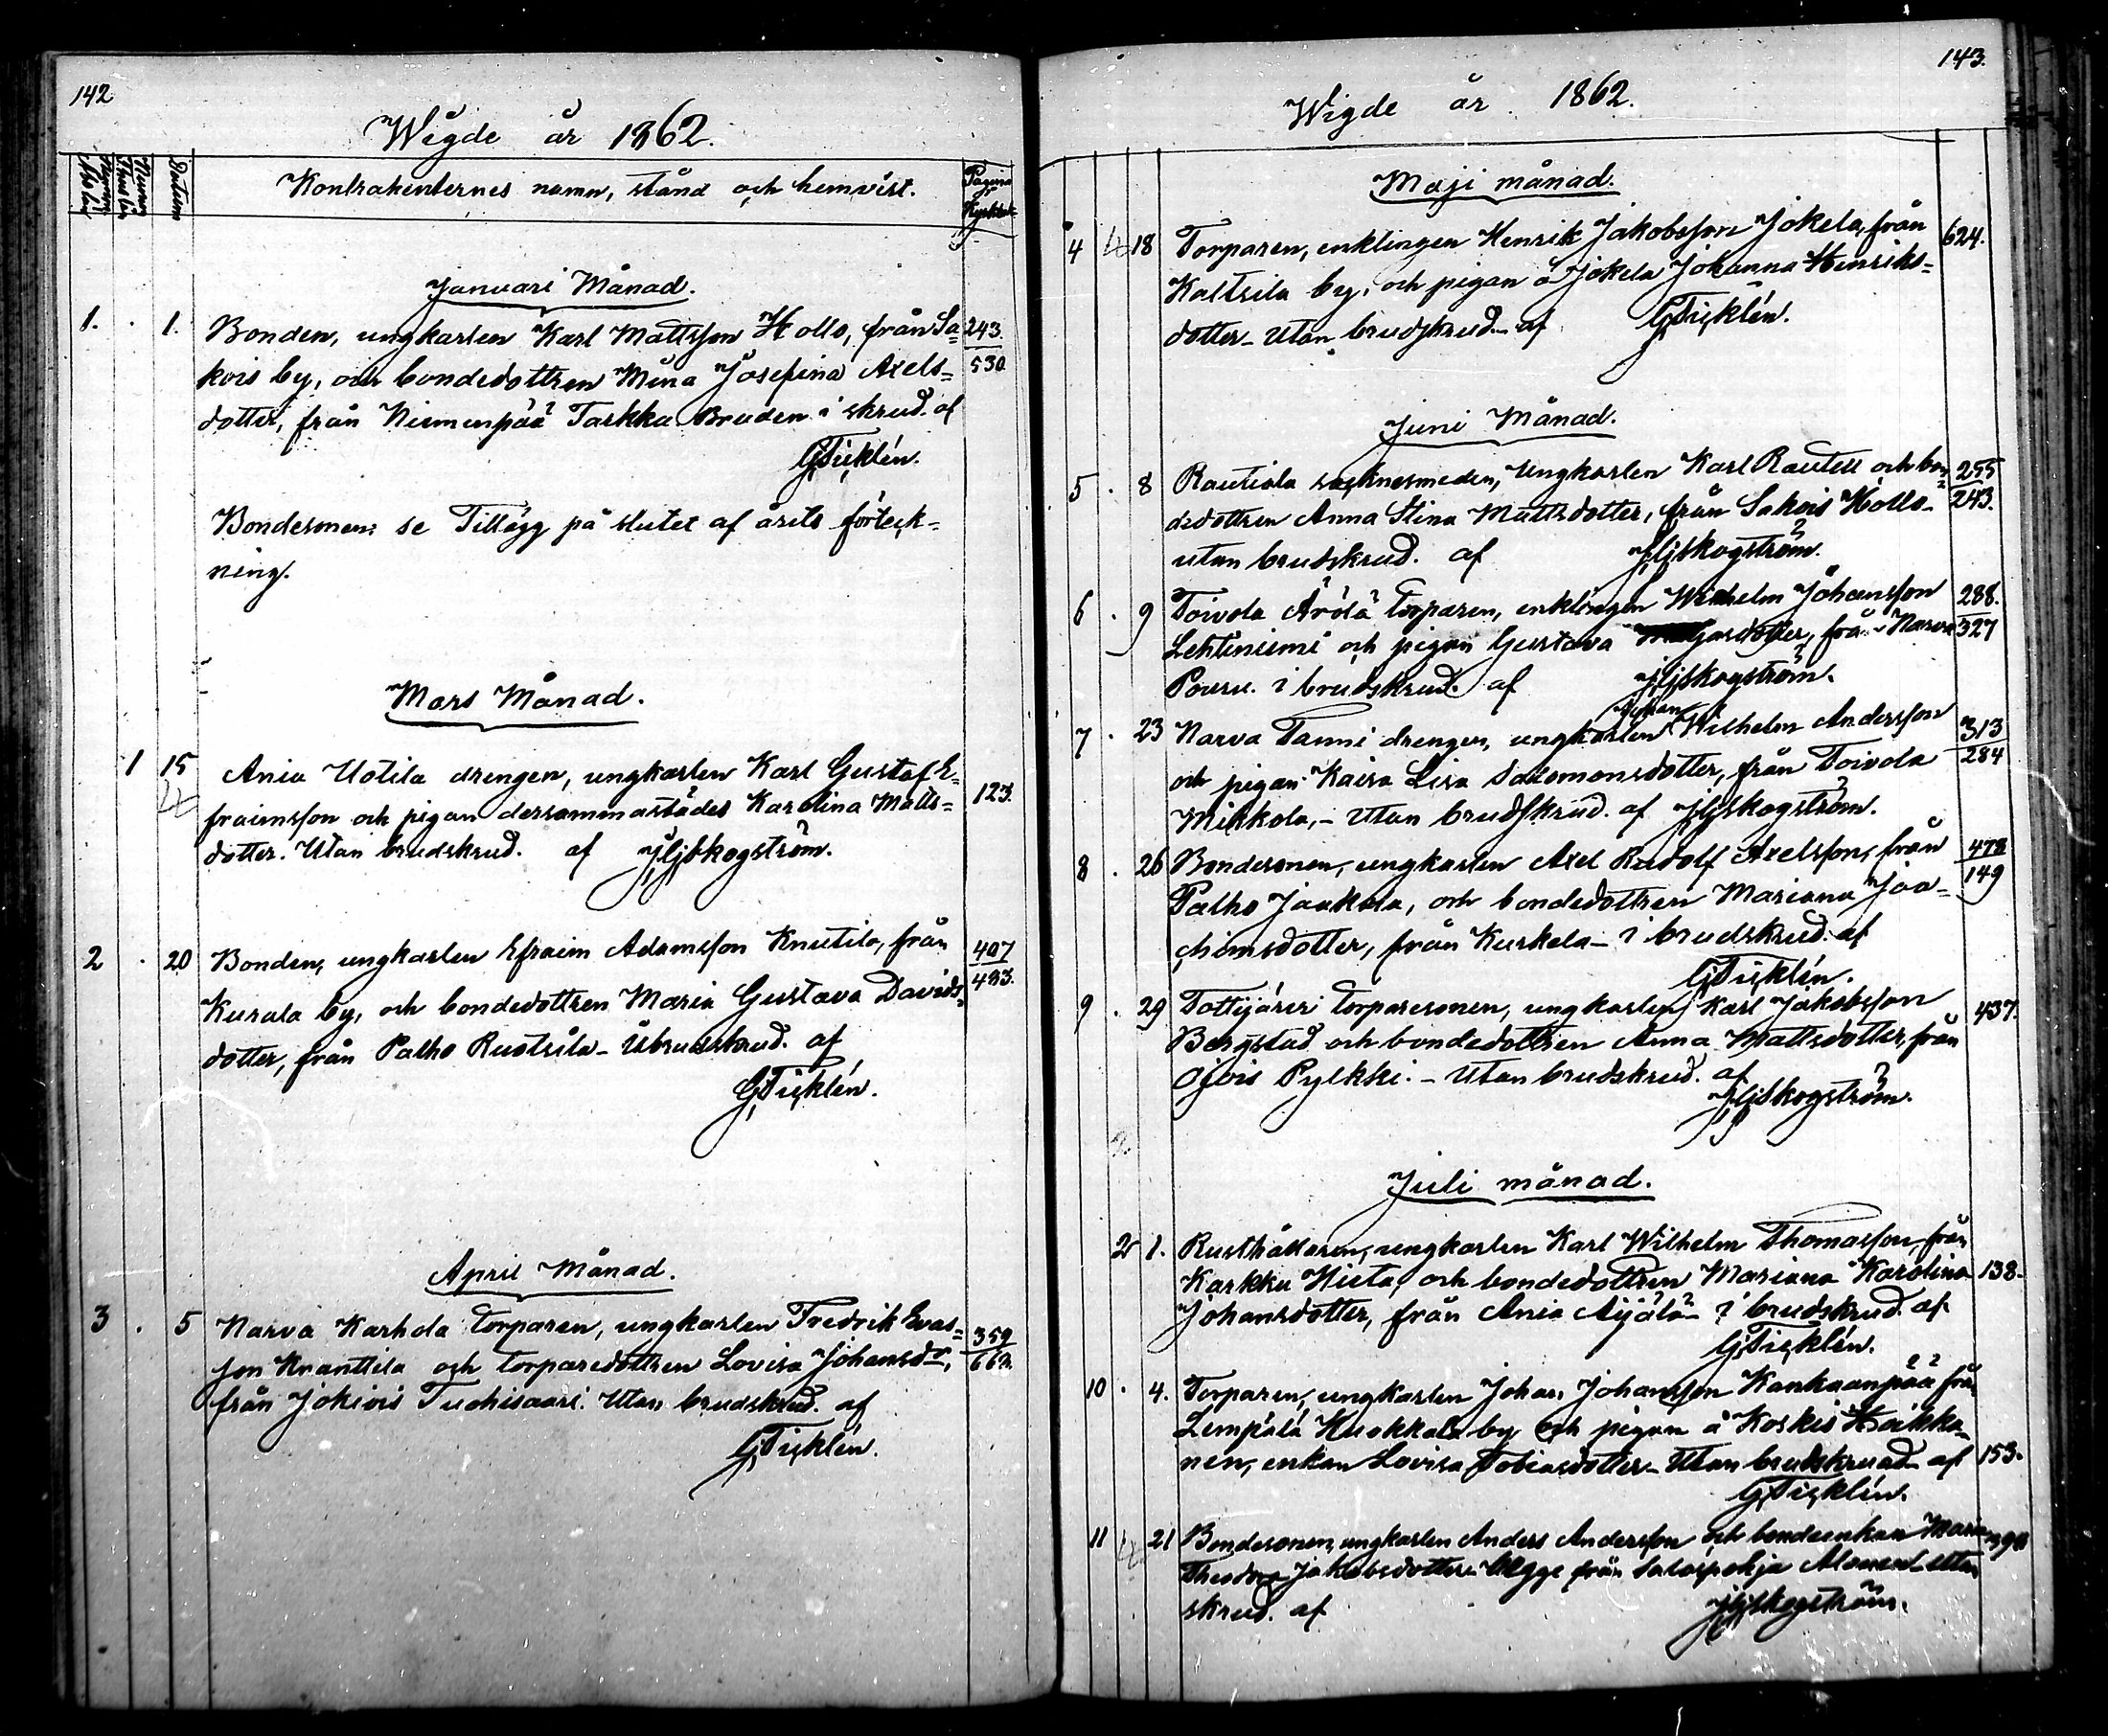 142
Wigde år 1862.
Datum
Kontrahenternes namn, stånd och hemvist.
Pagina
Januari Månad.
1. 1. Bonden, ungkarlen Karl Mattsson Hollo, från Sa= 243.
kois by, och bondedottren Mina Josefina Axels= 530
dotter, från Niemenpää Tarkka Bruden i skrud. af
G,Ticklén.
Bondesonen: se Tillägg på slutet af årets förteck=
ning.
Mars Månad.
1 15 Ania Uotila drengen, ungkarlen Karl Gustaf E=
fraimsson och pigan dersammastädes Karolina Matts= 123.
dotter. Utan brudskrud. af Skogström.
2 . 20 Bonden, ungkarlen Efraim Adamsson Knutila, från 407
Kurala by, och bondedottren Maria Gustava Davids= 483.
dotter, från Palho Ruotsila- brudskrud. af
G,Ticklén.
April Månad.
3 . 5 Narva Karhola Torparen, ungkarlen Fredrik Evas= 359
son Kranttila och torparedottren Lovisa Johansdr, 662.
från Jokiois Tuohisaari. Utan brudskrud. af
G,Ticklén.
143.
Wigde år 1862.
Maji månad.
4 18 Torparen, enklingen Henrik Jakobsson Jokela, från 624.
Kaltsila by, och pigan å Jokela Johanna Henriks=
dotter- Utan brudskrud- af G,Ticklén.
Juni Månad.
5 . 8 Rautiala socknesmeden, Ungkarlen Karl Rautell och bon= 255
dedottren Anna Stina Mattsdotter, från Sakois Hollo- 243.
utan brudskrud. af Skogström.
6 . 9 Toivola Ärölä Torparen, enklingen Wilhelm Johansson 288.
Lehtiniemi och pigan Gustava från Narva 327
i brudskrud. af Skogström.
Johan
7 . 23 Narva Tanni drengen, ungkarlen Wilhelm Andersson 313
och pigan Kaisa Lisa Salomonsdotter, från Toivola 284
Mikkola,- Utan brudskrud. af Skogström.
8 . 26 Bondesonen, ungkarlen Axel Rudolf Axelsson, från 478
Palho Jaakola, och bondedottren Mariana Joa= 149
chimsdotter, från Kurkela- i brudskrud. af
G,Ticklén.
9 . 29 Tottijärvi torparesonen, ungkarlen Karl Jakobsson 437.
Bergstad och bondedottren Anna Mattsdotter, från
Ojois Pylkki.- Utan brudskrud. af
Skogström.
Juli månad.
2 1. Rusthållaren, ungkarlen Karl Wilhelm Thomasson, från
Karkku Hieta, och bondedottren Mariana Karolina 138.
Johansdotter, från Ania Äijälä- i brudskrud. af
G,Ticklén.
10 . 4. Torparen, ungkarlen Johan Johansson Kankaanpää från
Lempälä Kuokkala by och pigan å Koskis Hoikka=
nen, enkan Lovisa Tobiasdotter- Utan brudskrud af 153.
G,Ticklén.
11 21 Bondesonen, ungkarlen Anders Andersson och bondeenkan Maria
Theodora Jakobsdotter- begge från Salospohja Alonen- Utan
skrud. af Skogström.